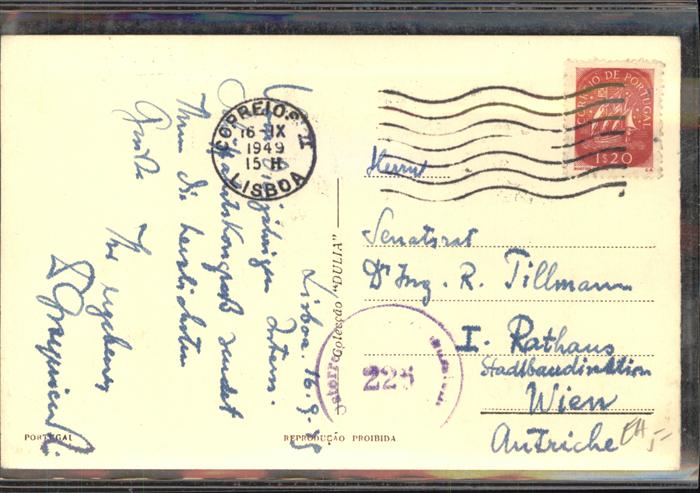 CORREIO DE PORTUGAL
1$20
CORREIOS II
16-IX
1949
15 H
LISBOA
Herrn
Senatsrat
Dr Ing. R. Tillmann
I. Rathaus
Stadtbaudirektion
Wien
Autriche
Lisboa. 16.9.
Intern.
kongreß sendet
Ihnen die herzlichsten
Grüße
Ihr ergebener
Colecção "DULIA"
225
PORTUGAL
REPRODUÇÃO PROIBIDA